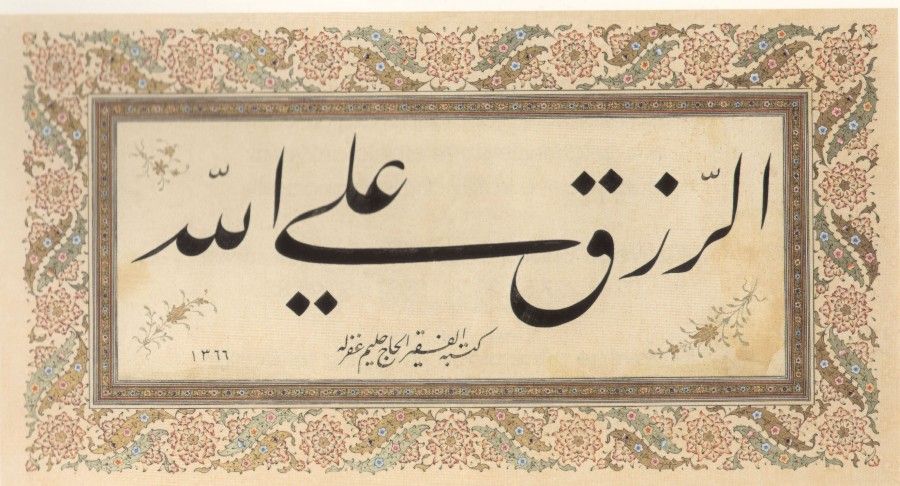 الرّزق علي اللّه
كتبه الفقير الحاج حليم غفرله
١٣٦٦